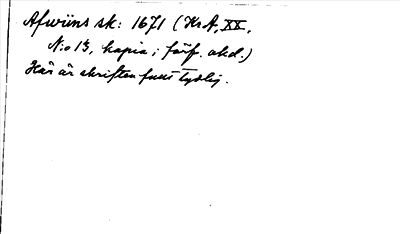 Afwuns sk: 1671 (KrA, XX,
N:o 13, kopia; förf. okd.)
Här är skriften fullt tydlig.